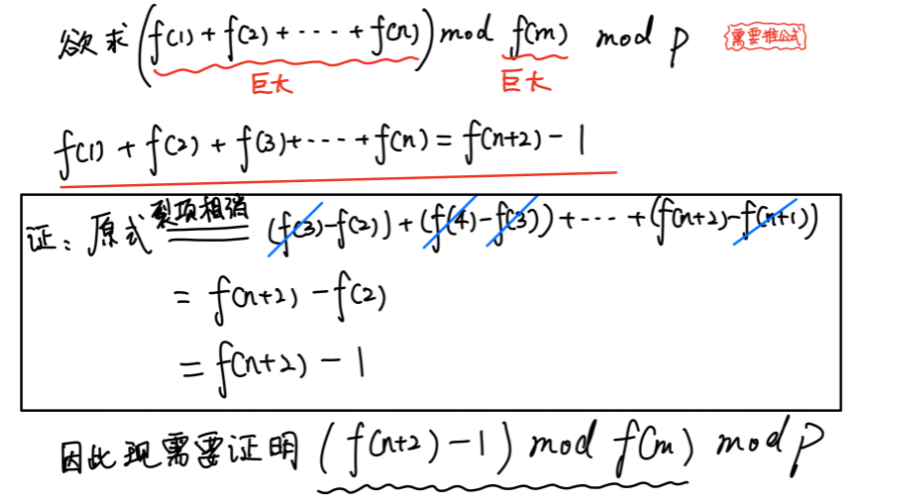 欲求 (f(1) + f(2) + ······ + f(n)) mod f(m) mod p 需要推公式
巨大 巨大
f(1) + f(2) + f(3) + ······ + f(n) = f(n+2) - 1
证: 原式 裂项相消 (f(3)-f(2)) + (f(4)-f(3)) + ······ + (f(n+2)-f(n+1))
= f(n+2) - f(2)
= f(n+2) - 1
因此现需要证明 (f(n+2) - 1) mod f(m) mod p